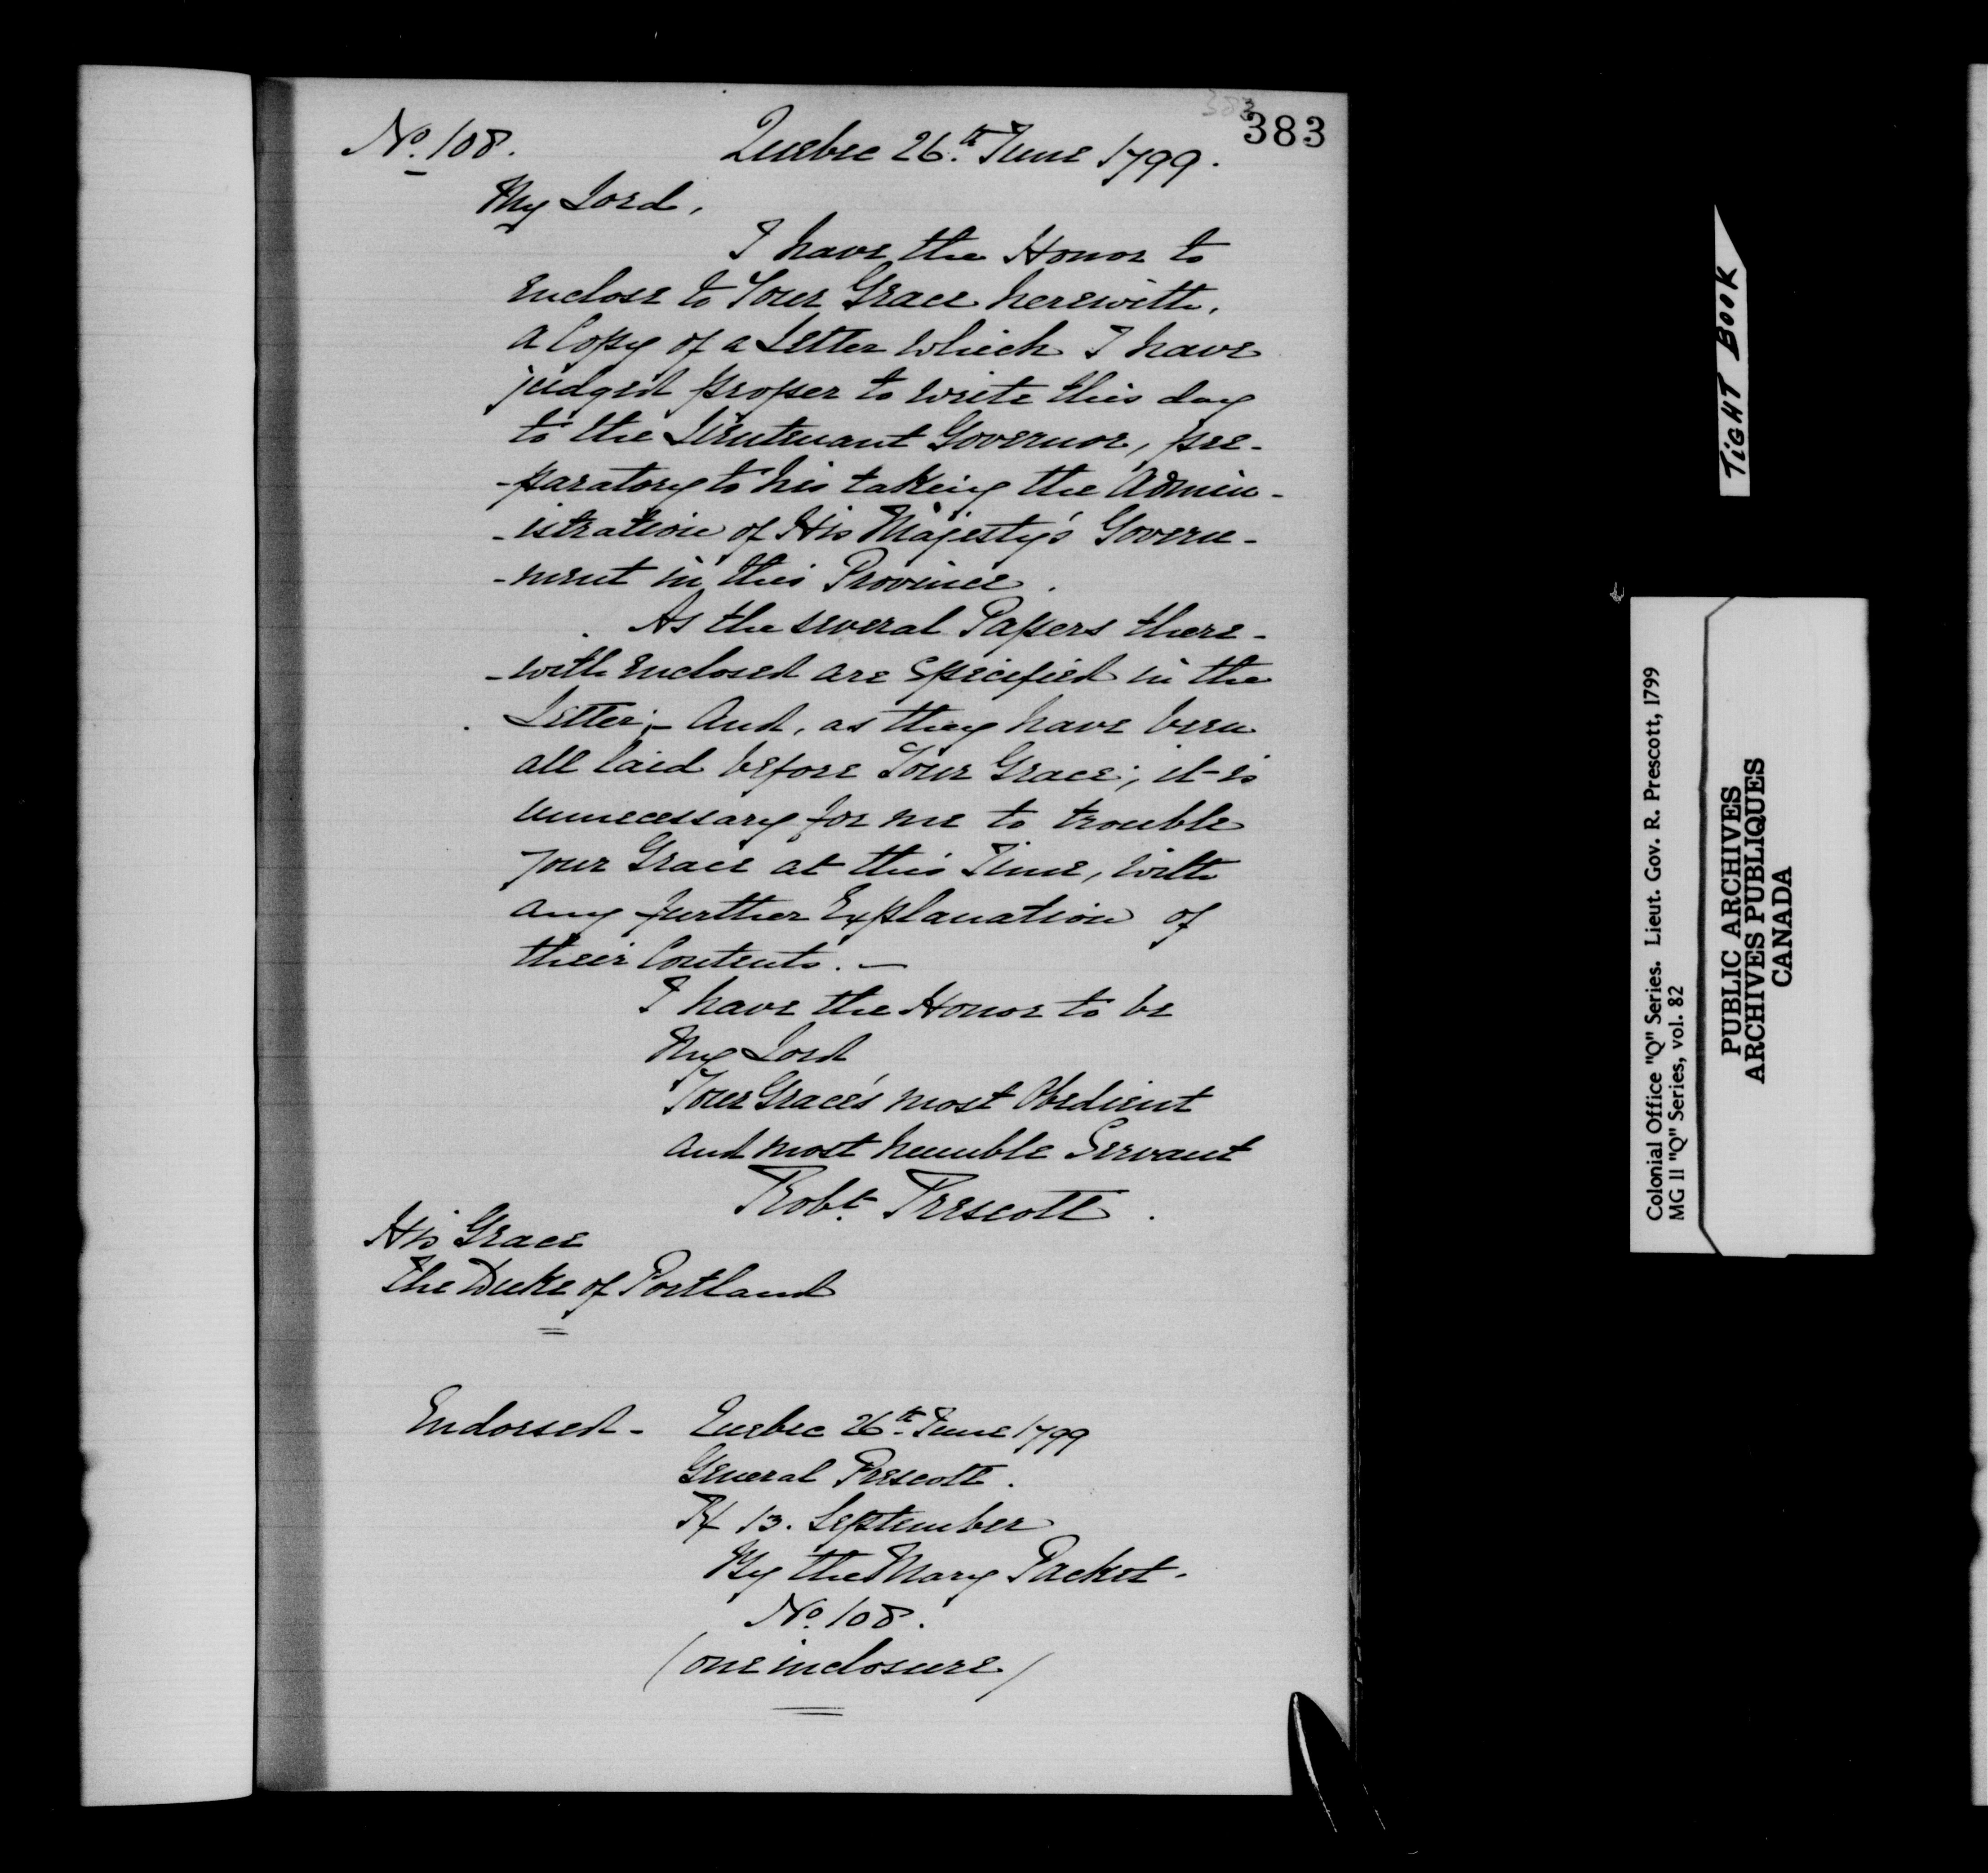 383
383
No. 108. Quebec 26th June 1799.
My Lord,
I have the Honor to
enclose to Your Grace herewith,
a Copy of a Letter which I have
judged proper to write this day
to the Lieutenant Governor, pre-
-paratory to his taking the Admin-
-istration of His Majesty's Govern-
-ment in this Province.
As the several Papers there-
-with enclosed are specified in the
Letter;- And, as they have been
all laid before Your Grace; it is
unnecessary for me to trouble
your Grace at this Time, with
any further Explanation of
their Contents. —
I have the Honor to be
My Lord
Your Grace's most Obedient
and most humble Servant
Robt. Prescott.
His Grace
The Duke of Portland
Endorsed - Quebec 26th June 1799
General Prescott.
Rx 13. September
By the Mary Packet.
No. 108.
(one inclosure)
TIGHT BOOK
Colonial Office "Q" Series. Lieut. Gov. R. Prescott, 1799
MG 11 "Q" Series, vol. 82
PUBLIC ARCHIVES
ARCHIVES PUBLIQUES
CANADA